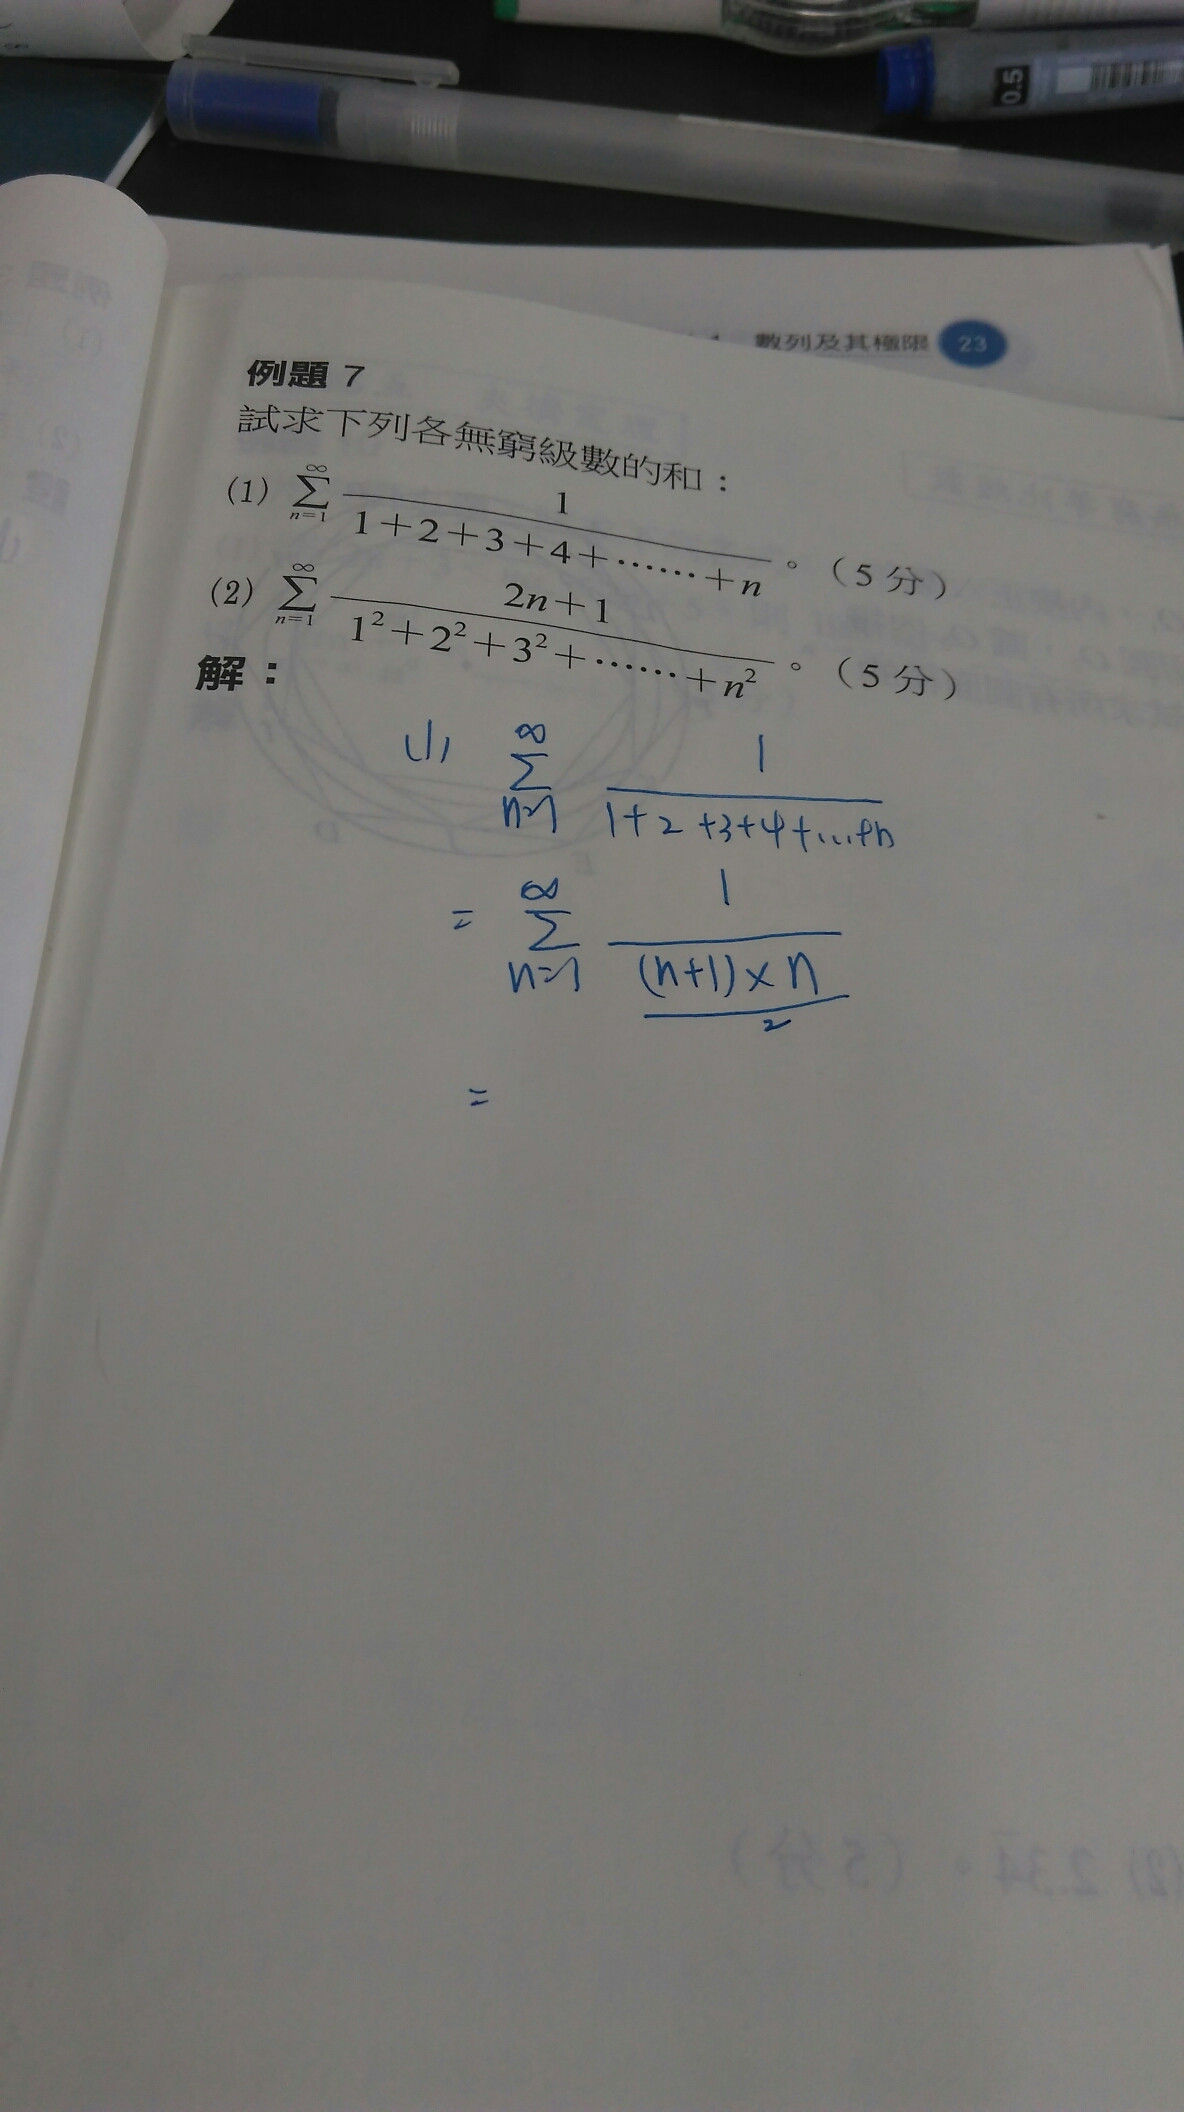 0.5
數列及其極限 23
例題 7
試求下列各無窮級數的和：
(1) ∞∑n=1 1/(1+2+3+4+⋯⋯+n)。（5分）
(2) ∞∑n=1 (2n+1)/(1²+2²+3²+⋯⋯+n²)。（5分）
解：
(1) ∞∑n=1 1/(1+2+3+4+...+n)
= ∞∑n=1 1/((n+1)×n/2)
=
(2) 2.34。（5分）